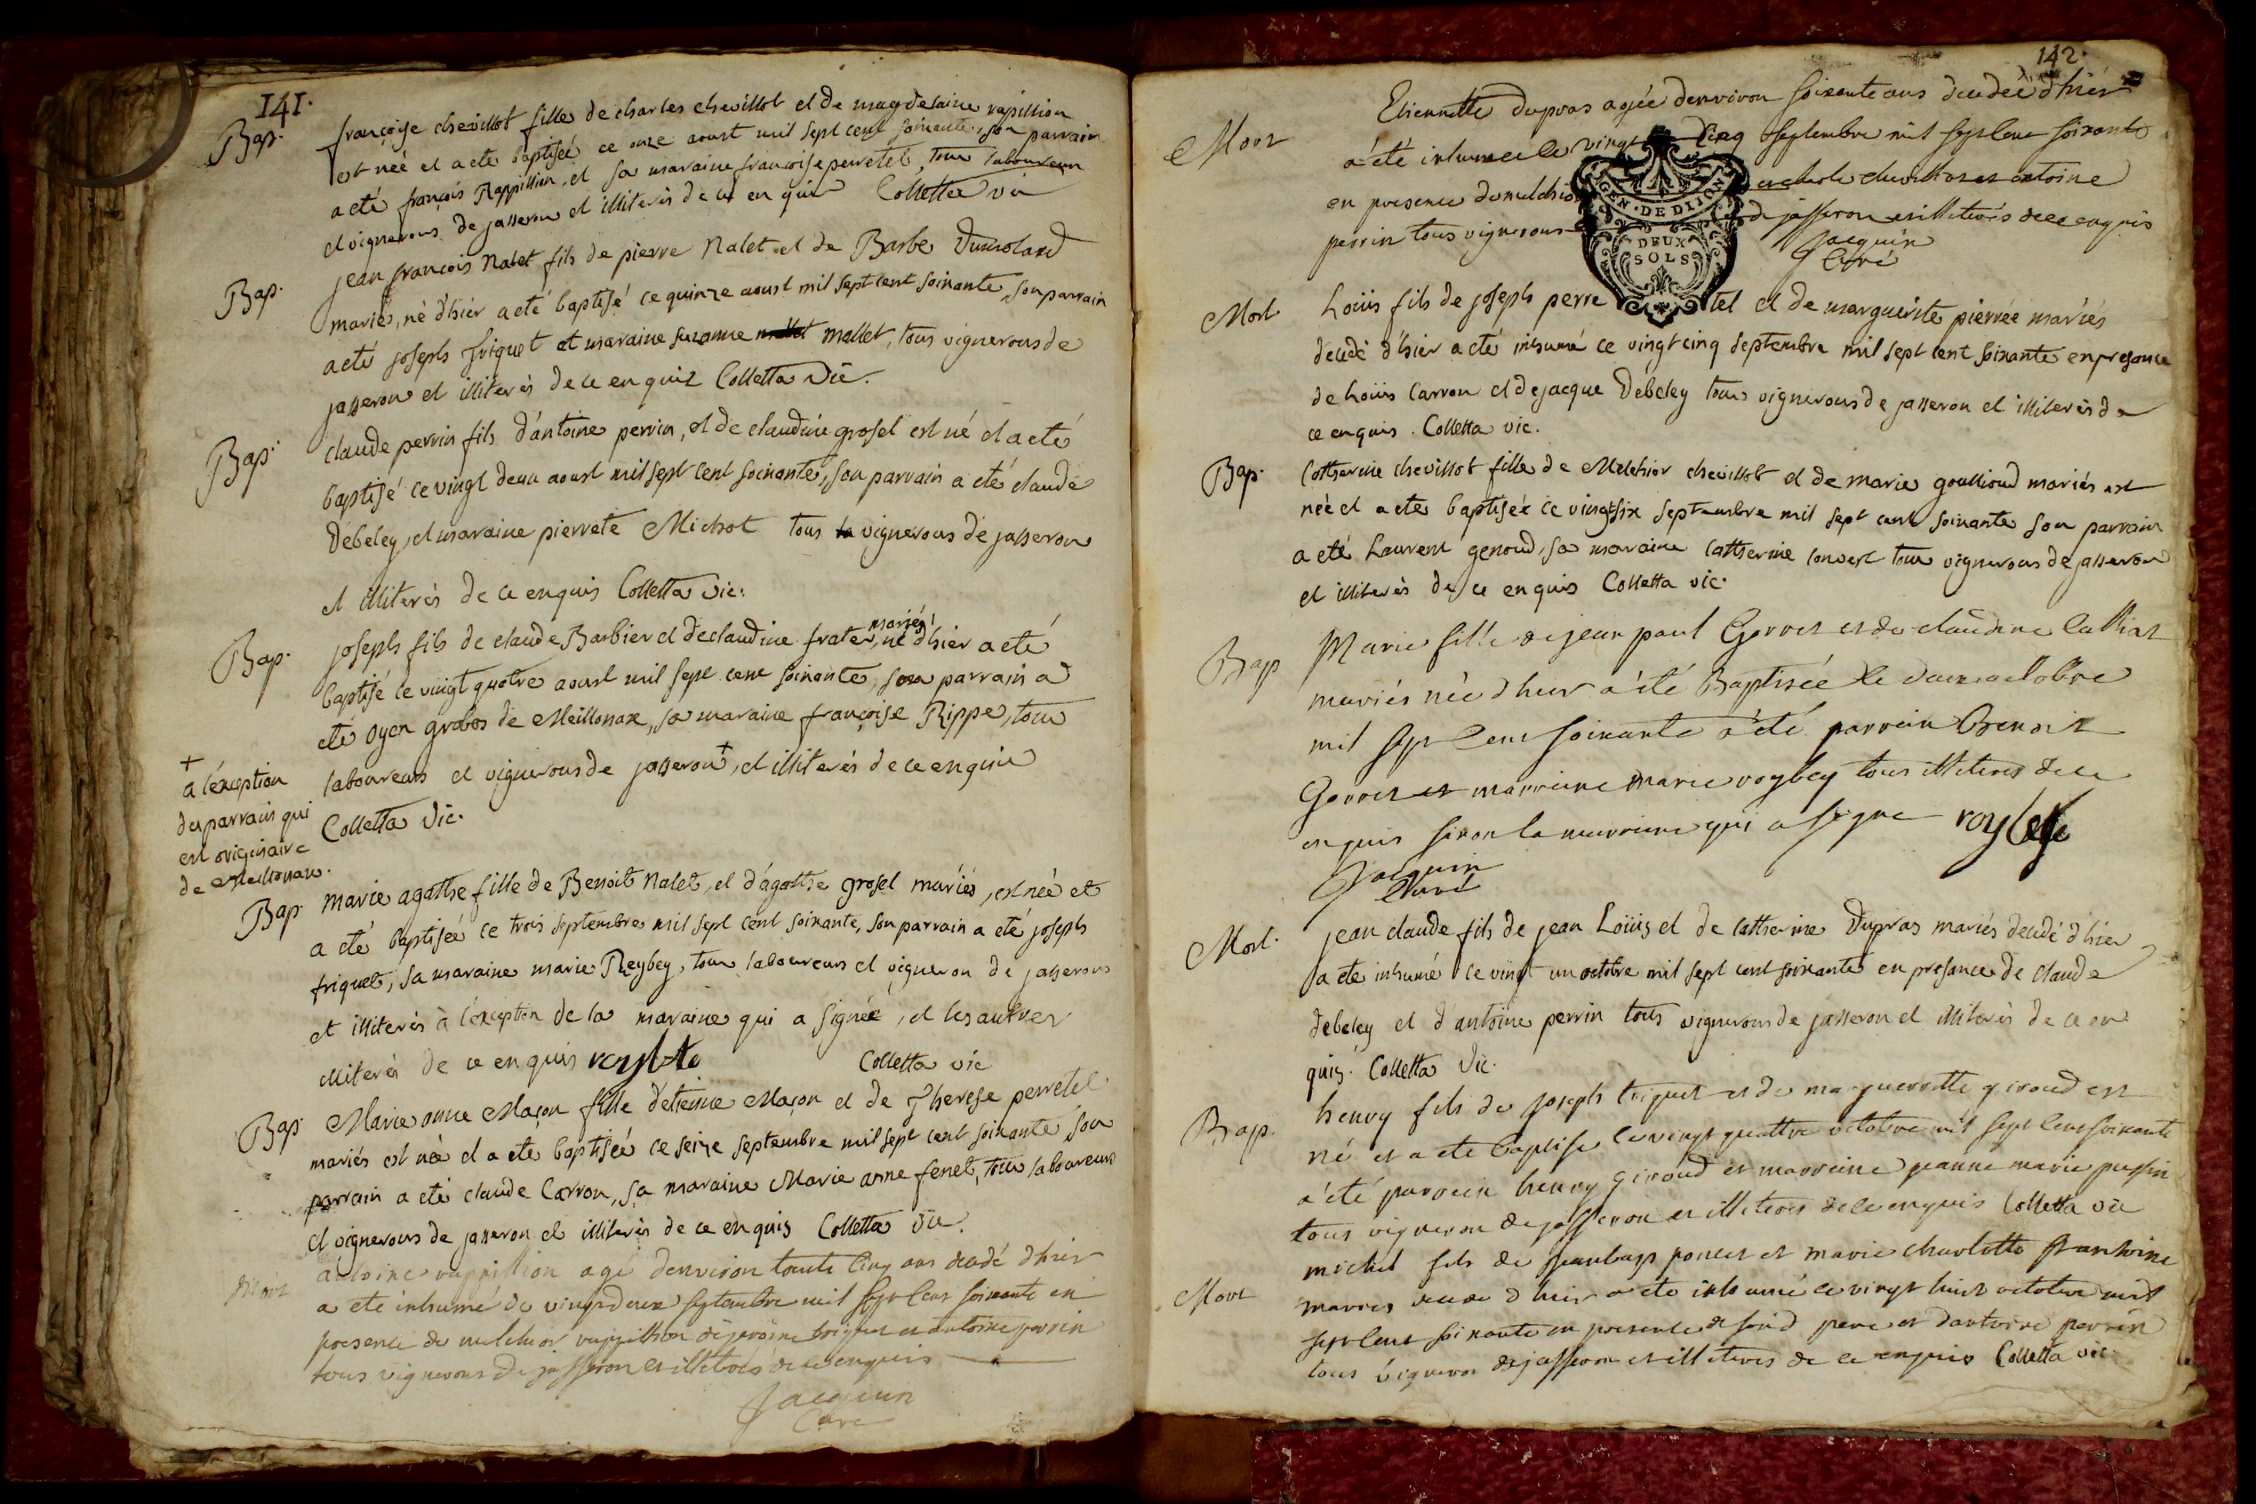 141.
Bap. françoise chevillot fille de charles chevillot et de magdelaine rapillion
est née et a eté baptiseé ce onze aoust mil sept cent soixante, son parrain
a eté françois Rappillion, et sa maraine francoise perretel, tous laboureurs
et vignerons de jasseron et illiterés de ce en quis Colletta vic
Bap. jean françois Nalet fils de pierre Nalet et de Barbe Dumolard
mariés, né d'hier a eté baptisé ce quinze aoust mil sept cent soixante, son parrain
a eté joseph friquet et maraine suzanne mallet, tous vignerons de
jasseron et illiterés de ce en quis Colletta vic.
Bap. claude perrin fils d'antoine perrin, et de claudine grosel est né et a eté
baptisé ce vingt deux aoust mil sept cent soixante, son parrain a eté claude
Debeley, et maraine pierrete Michot tous vignerons de jasseron
et illiterés de ce enquis Colletta vic.
mariés
Bap. joseph fils de claude Barbier et de claudine frater, né d'hier a eté
baptisé ce vingt quatre aoust mil sept cent soixante, son parrain a
eté oyen grabos de Meillonax, sa maraine françoise Rippe, tous
laboureurs et vignerons de jasseron +, et illiterés de ce enquis
Colletta vic.
+
a l'exception
du parrain qui
est originaire
de Meillonax.
Bap. marie agathe fille de Benoit Nalet, et d'agathe grosel mariés, est née et
a eté baptiseé ce trois septembre mil sept cent soixante, son parrain a eté joseph
friquet, sa maraine marie Reybey, tous laboureurs et vigneron de jasseron
et illiterés à l'exception de la maraine qui a signée, et les autres
illiterés de ce enquis Colletta vic
Bap. Marie anne Maçon fille d'etienne Maçon et de Therese perretel
mariés est née et a eté baptiseé ce seize septembre mil sept cent soixante, son
parrain a eté claude Carron, sa maraine Marie anne fenet, tous laboureurs
et vignerons de jasseron et illiterés de ce enquis Colletta vic.
Mort antoine rappillion agé denviron trente cinq ans decedé d'hier
a eté inhumé ce vingt deux septembre mil sept cent soixante en
presence de melchior rappillion de friquet et antoine perrin
tous vignerons de jasseron et illiterés de ce enquis
Jacquin
Curé
142.
Mort Etiennette dupras agée denviron soixante ans decedée d'hier
a été inhumée ce vingt cinq septembre mil sept cent soixante
en presence de melchior chevillot et antoine
perrin tous vignerons de jasseron et illiterés de ce enquis
GEN. DE DIJON
DEUX
SOLS
Jacquin
Curé
Mort Louis fils de joseph perretel et de marguerite pierrée mariés
decedé d'hier a eté inhumé ce vingt cinq septembre mil sept cent soixante en presance
de Louis Carron et de jacque Debeley tous vignerons de jasseron et illiterés de
ce enquis. Colletta vic.
Bap. Catherine chevillot fille de Melchior chevillot et de marie goullioud mariés est
née et a eté baptiseé ce vingt six septembre mil sept cent soixante son parrain
a eté Laurent genoud, sa maraine Catherine convert tous vignerons de jasseron
et illiterés de ce enquis Colletta vic.
Bap Marie fille de jean paul Gorret et de claudine Calliat
mariés née d'hier a été Baptisée le deux octobre
mil sept cent soixante a été parrain Benoit
Gorret et marreine marie roybey tous illiteres de ce
enquis sinon la marreine qui a signe
Jacquin
Curé
Mort. jean claude fils de jean Louis et de Catherine Dupras mariés decedé d'hier
a eté inhumé ce vingt un octobre mil sept cent soixante en presance de claude
debeley et d'antoine perrin tous vignerons de jasseron et illiterés de ce en
quis. Colletta vic.
Bap. henry fils de joseph friquet et de marguerite giroud est
né et a eté baptisé ce vingt quattre octobre mil sept cent soixante
a été parrein henry giroud et marreine jeanne marie
tous vigneron de jasseron et illiteres de ce enquis Colletta vic
Mort michel fils de jean bap poncet et marie charlotte
mariés decedé d'hier a eté inhumé ce vingt huit octobre mil
sept cent soixante en presence de son d pere et d'antoine perrin
tous vigneron de jasseron et illiteres de ce enquis Colletta vic.